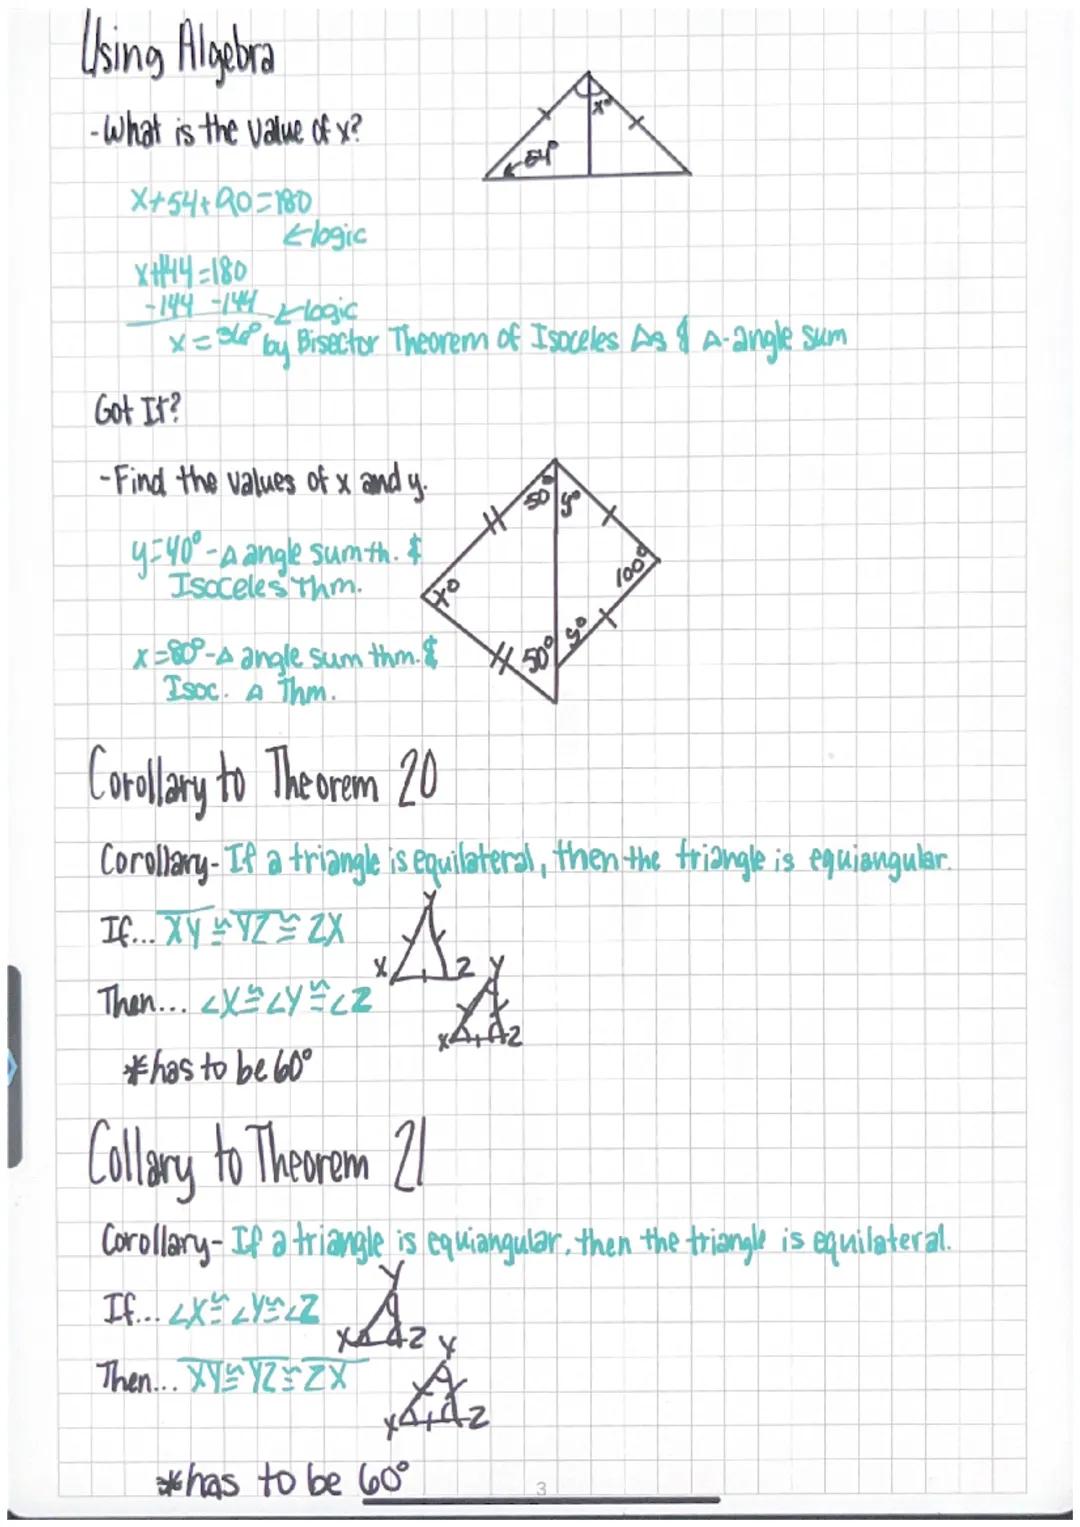 Using Algebra
- What is the value of x?
x°
54°
x+54+90=180
←logic
x+144=180
-144 -144 ←logic
x=36° by Bisector Theorem of Isoceles △s & △-angle sum
Got It?
- Find the values of x and y.
50° y°
y=40° - △ angle sum th. &
Isoceles Thm.
100°
x°
x=80° - △ angle sum thm. &
Isoc. △ Thm.
50° y°
Corollary to Theorem 20
Corollary- If a triangle is equilateral, then the triangle is equiangular.
If... XY ≅ YZ ≅ ZX
Y
X Z
Then... ∠X ≅ ∠Y ≅ ∠Z
Y
X Z
*has to be 60°
Collary to Theorem 21
Corollary- If a triangle is equiangular, then the triangle is equilateral.
If... ∠X ≅ ∠Y ≅ ∠Z
Y
X Z
Then... XY ≅ YZ ≅ ZX
Y
X Z
*has to be 60°
3